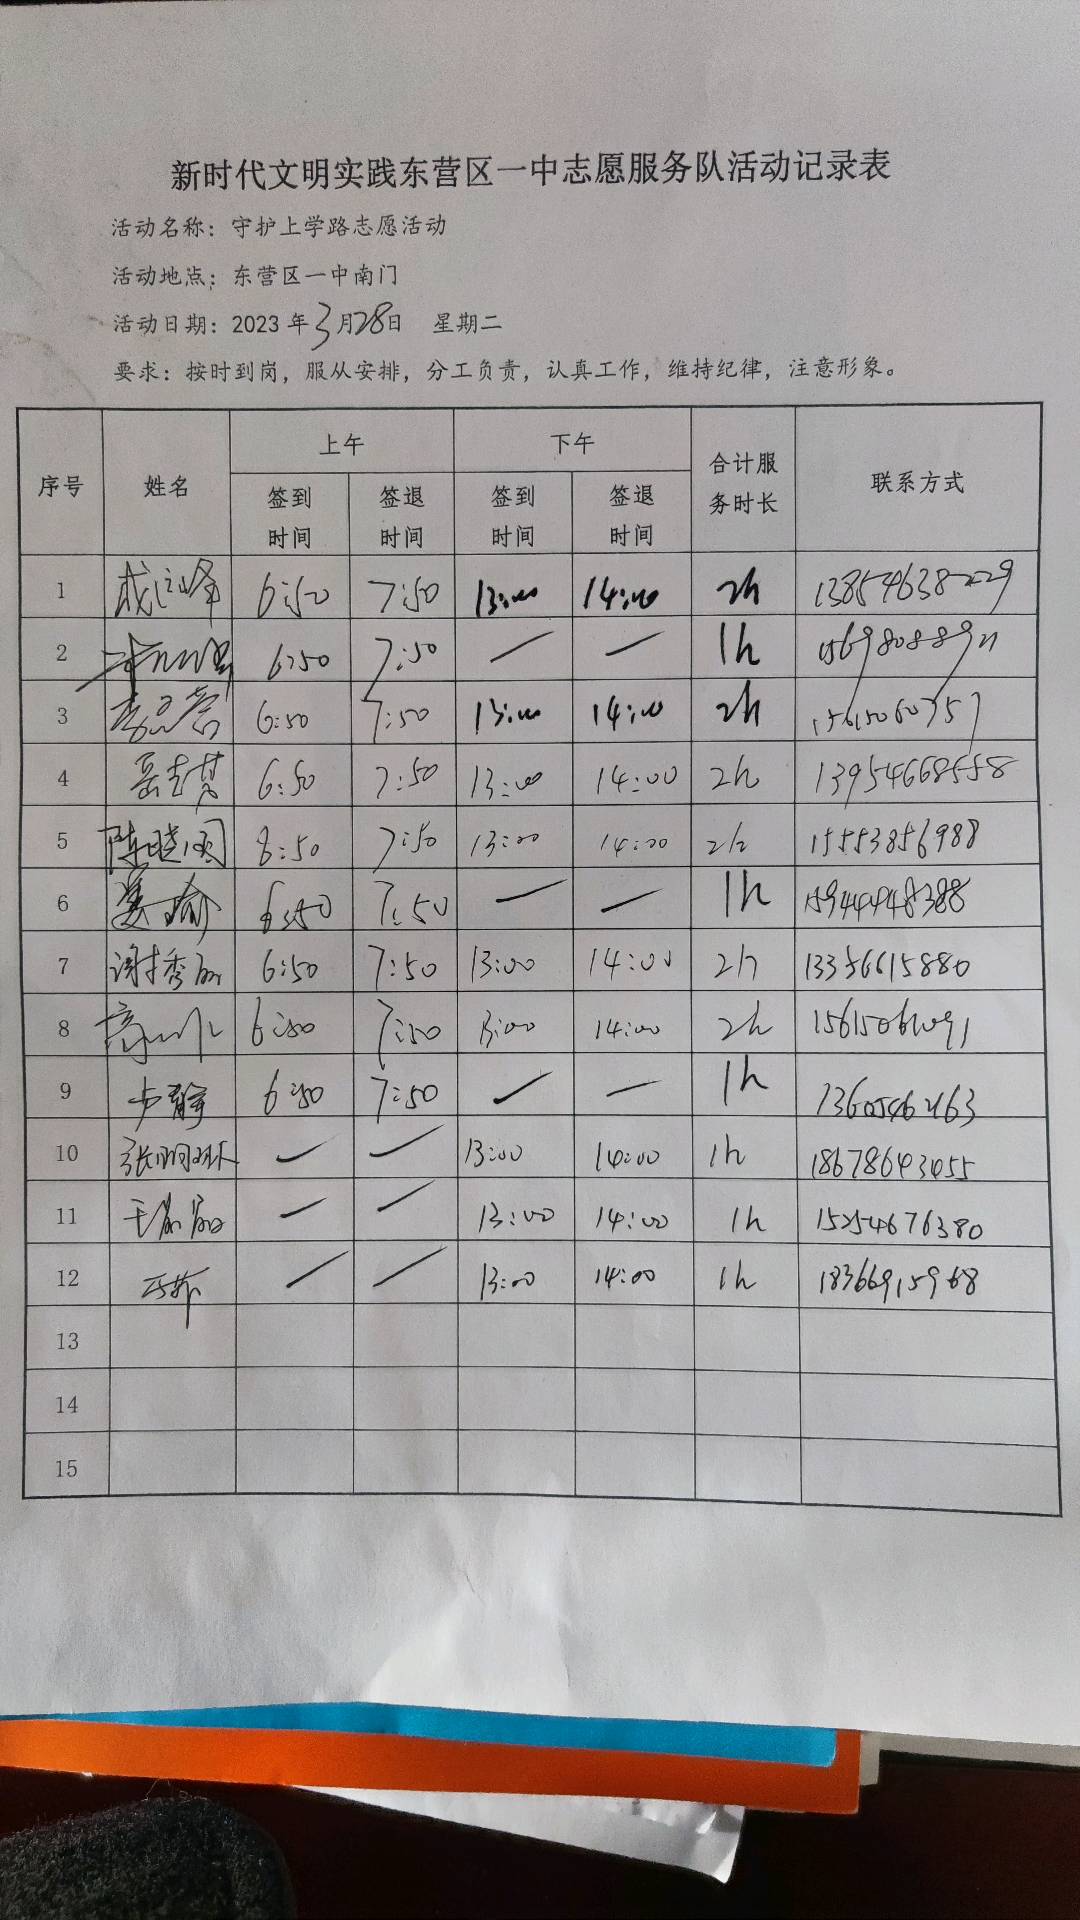 新时代文明实践东营区一中志愿服务队活动记录表
活动名称：守护上学路志愿活动
活动地点：东营区一中南门
活动日期：2023 年 3 月 28 日 星期二
要求：按时到岗，服从安排，分工负责，认真工作，维持纪律，注意形象。
序号 姓名 上午 下午 合计服务时长 联系方式
签到时间 签退时间 签到时间 签退时间
1 6:50 7:50 13:00 14:00 2h
2 6:50 7:50 — — 1h
3 6:50 7:50 13:00 14:00 2h
4 6:50 7:50 13:00 14:00 2h 13954668558
5 陈晓阁 8:50 7:50 13:00 14:00 2h 15553856988
6 姜瑜 6:50 7:50 — — 1h
7 谢秀丽 6:50 7:50 13:00 14:00 2h 13356615880
8 6:50 7:50 13:00 14:00 2h 15615061091
9 步静 6:50 7:50 — — 1h
10 — — 13:00 14:00 1h 18678643055
11 — — 13:00 14:00 1h 15254676380
12 — — 13:00 14:00 1h 18366915968
13
14
15